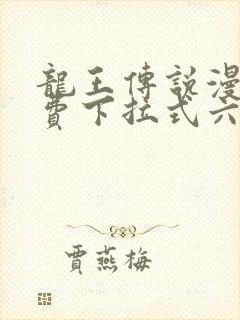 龍王傳説漫
費下拉式六
賈燕梅